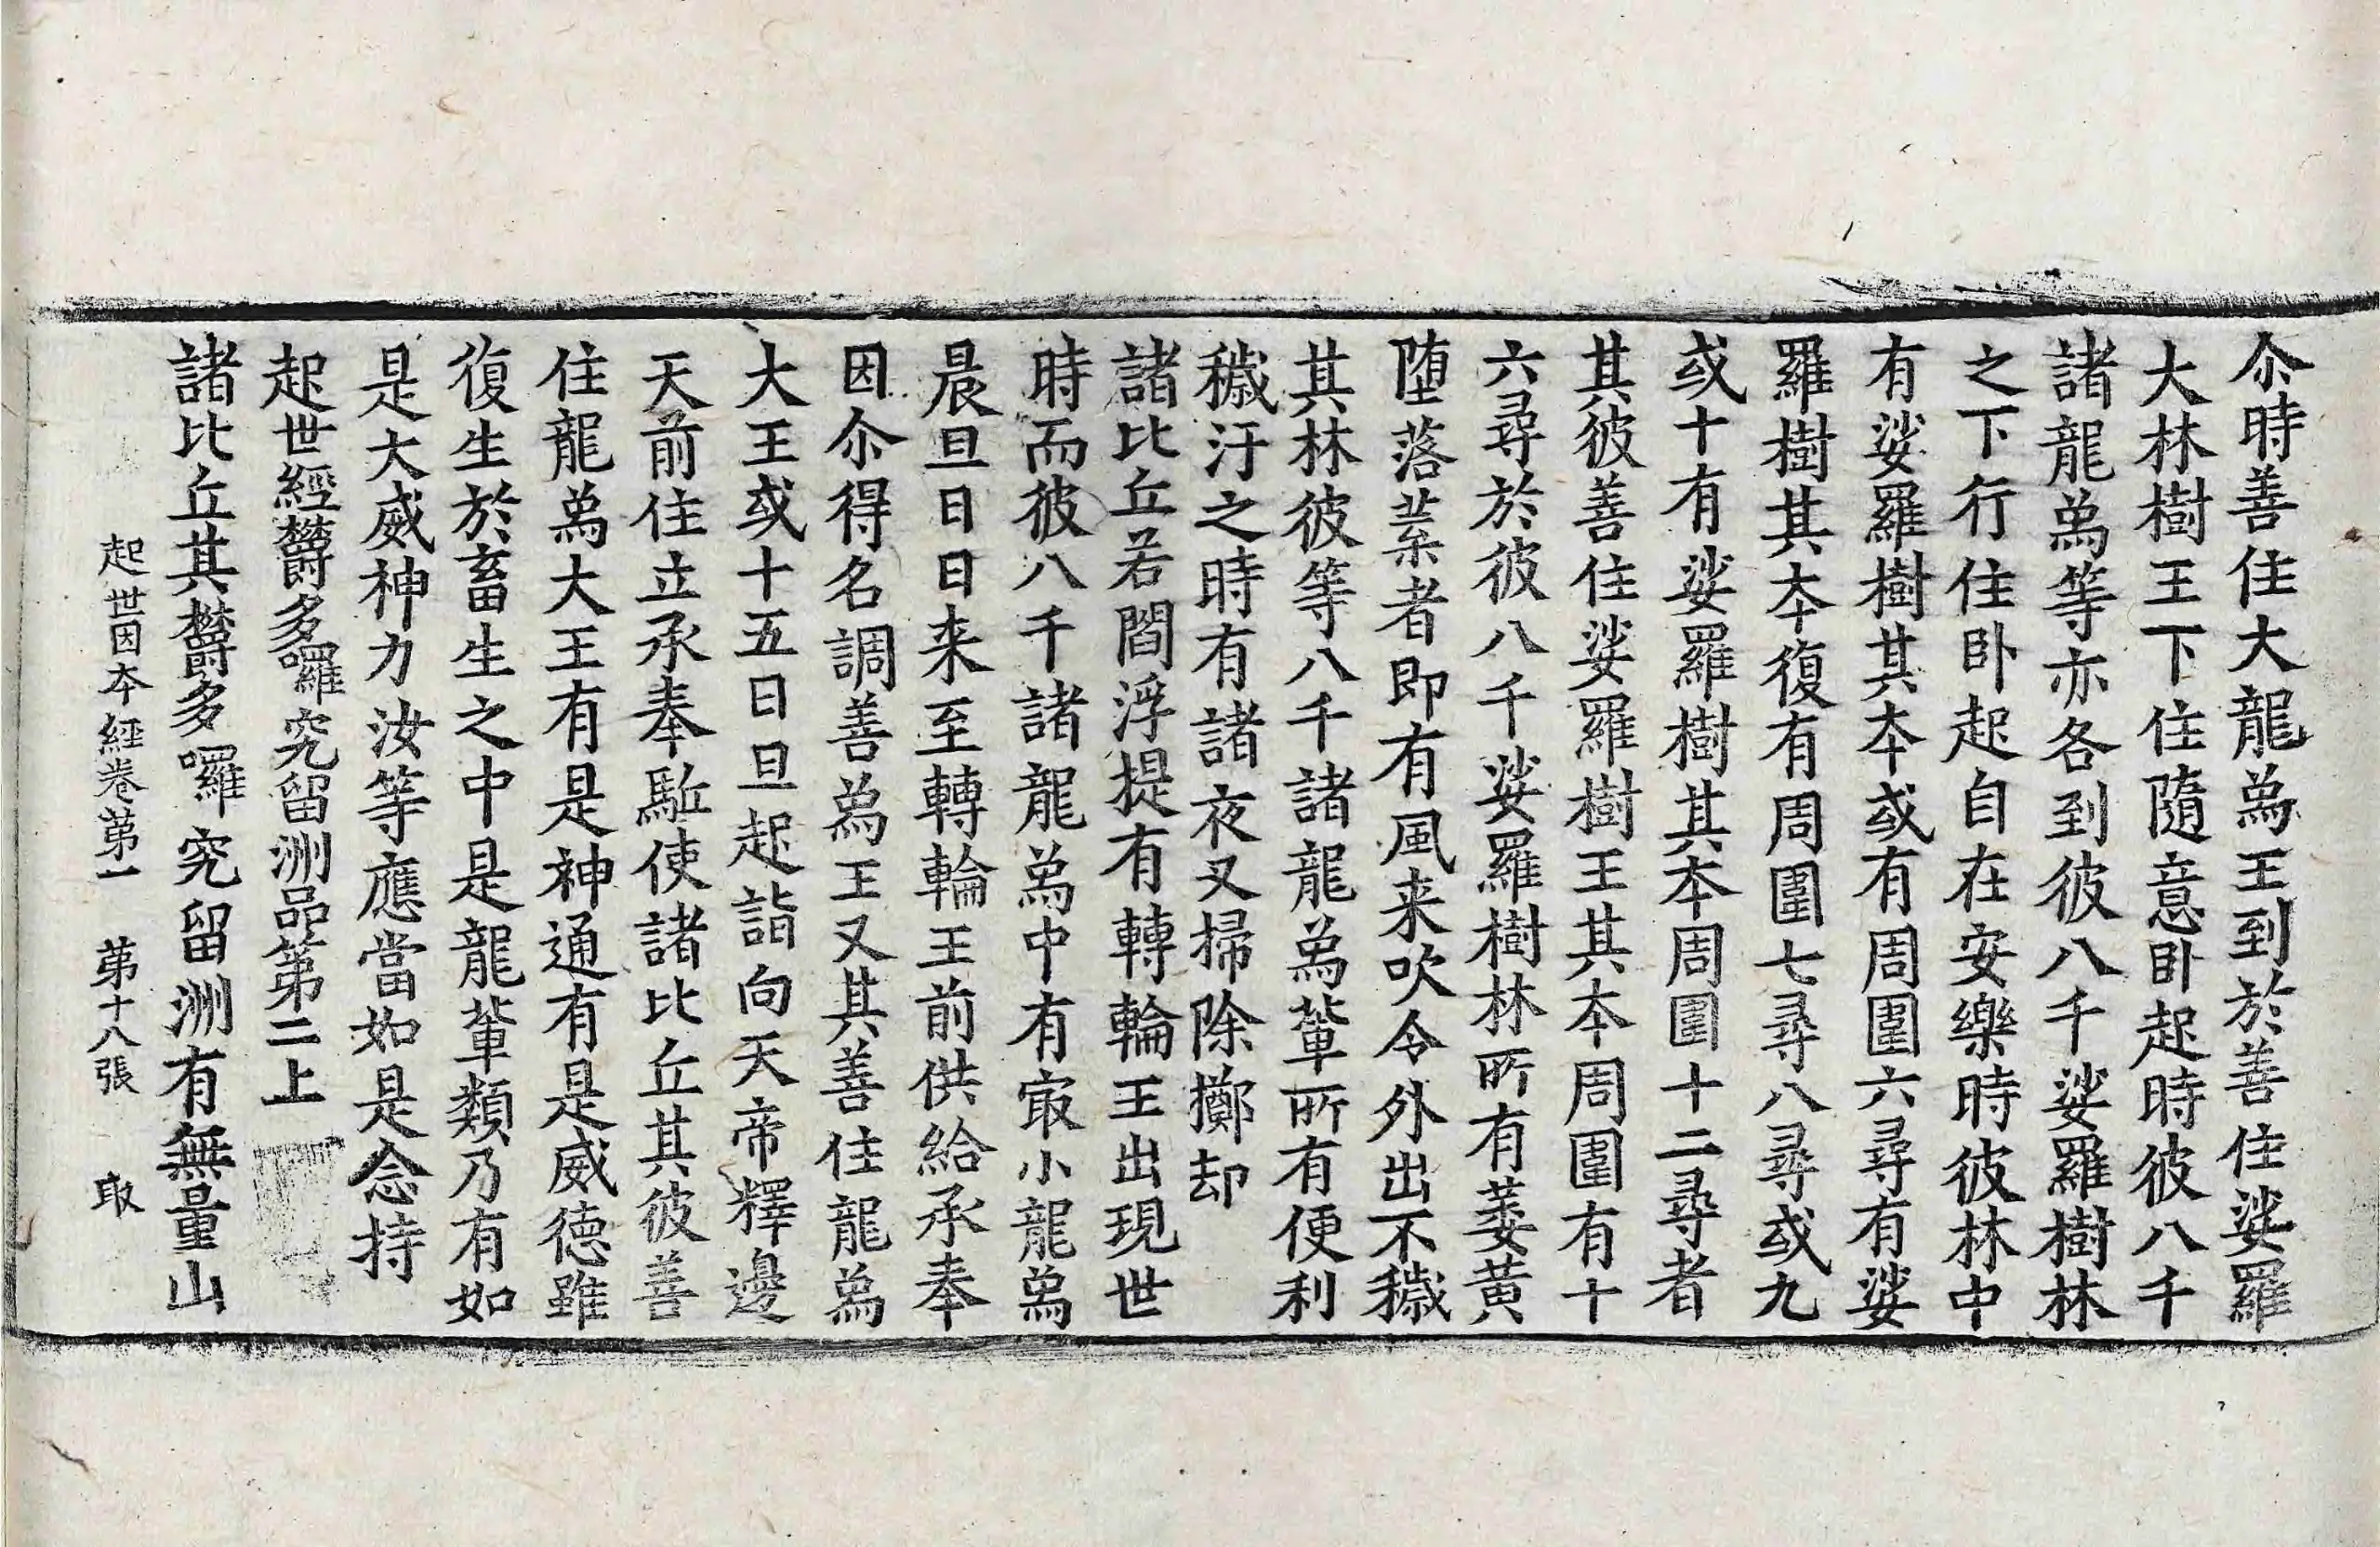 尒時善住大龍爲王到於善住娑羅
大林樹王下住隨意卧起時彼八千
諸龍爲等亦各到彼八千娑羅樹林
之下行住卧起自在安樂時彼林中
有娑羅樹其夲或有周圍六尋有娑
羅樹其夲復有周圍七尋八尋或九
或十有娑羅樹其夲周圍十二尋者
其彼善住娑羅樹王其夲周圍有十
六尋於彼八千娑羅樹林所有萎黄
堕落葉者即有風来吹令外出不穢
其林彼等八千諸龍爲軰所有便利
穢汙之時有諸夜叉掃除擲却
諸比丘若閻浮提有轉輪王出現世
時而彼八千諸龍爲中有㝡小龍爲
晨旦日日来至轉輪王前供給承奉
因尒得名調善爲王又其善住龍爲
大王或十五日旦起詣向天帝釋邊
天前住立承奉駈使諸比丘其彼善
住龍爲大王有是神通有是威德雖
復生於畜生之中是龍軰類乃有如
是大威神力汝等應當如是念持
起世經欝多囉究留洲品第二上
諸比丘其欝多囉究留洲有無量山
起世因夲經卷苐一　苐十八張　取